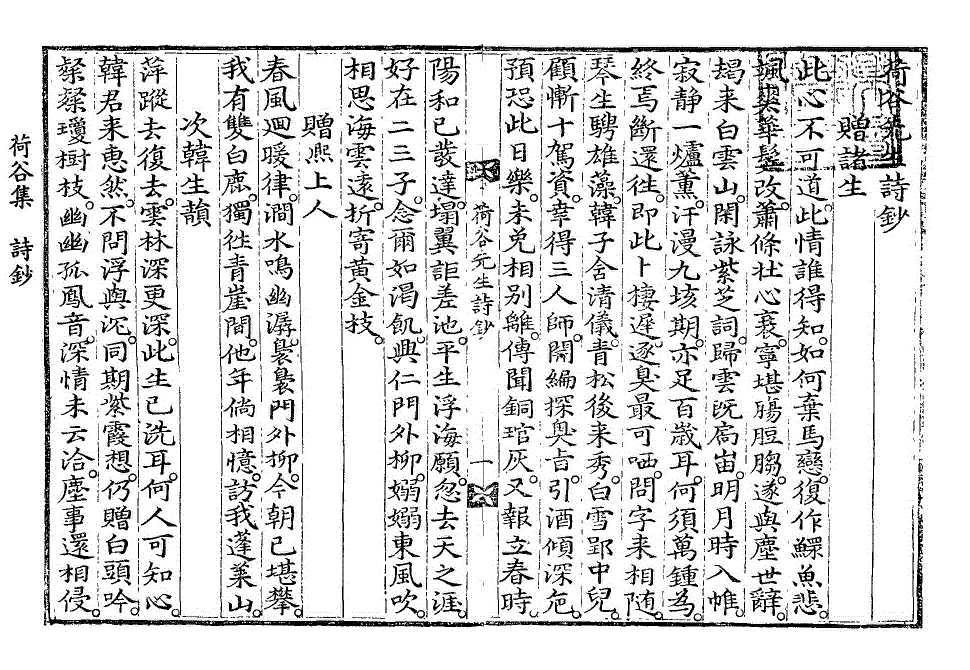 荷谷先生詩鈔
贈諸生
此心不可道。此情誰得知。如何棄馬戀。復作鰥魚悲。
颯爽華髮改。蕭條壯心衰。寧堪腸脰。遂與塵世辭。
朅来白雲山。閑詠紫芝詞。歸雲既扃宙。明月時入帷。
寂静一爐薰。汗漫九垓期。亦足百歲耳。何須萬鍾為。
終焉斷還徃。即此卜棲遲。逐臭最可哂。問字来相随。
琴生騁雄藻。韓子含清儀。青松後来秀。白雪郢中兒。
顧慚十駕資。幸得三人師。開編探奥旨。引酒傾深卮。
預恐此日樂。未免相别離。傳聞銅琯灰。又報立春時。
荷谷先生詩鈔 一
陽和已發達。塌翼詎差池。平生浮海願。忽去天之涯。
好在二三子。念爾如渴飢。興仁門外柳。嫋嫋東風吹。
相思海雲遠。折寄黄金枝。
贈熈上人
春風迴暖律。澗水鳴幽潺。裊裊門外柳。今朝已堪攀。
我有雙白鹿。獨徃青崖間。他年倘相憶。訪我蓬萊山。
次韓生韻
萍蹤去復去。雲林深更深。此生已洗耳。何人可知心。
韓君来恵然。不問浮與沉。同期紫霞想。仍贈白頭吟。
粲粲瓊樹枝。幽幽孤鳳音。深情未云洽。塵事還相侵。
荷谷集 詩鈔